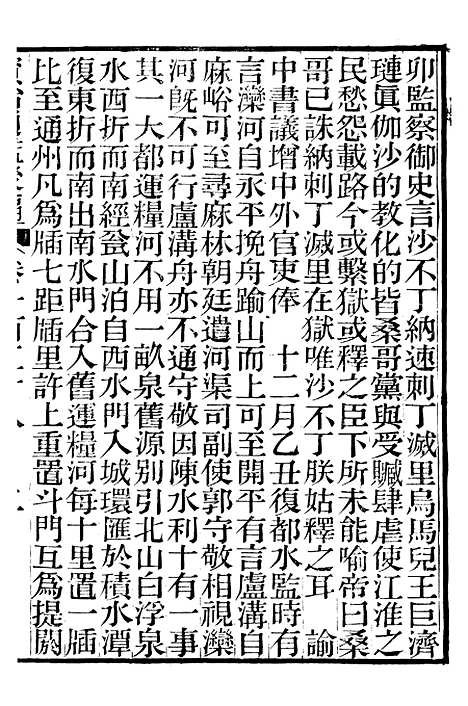 卯監察御史言沙不丁納速刺丁滅里烏馬兒王巨濟
璉眞伽沙的教化的皆桑哥黨與受贓肆虐使江淮之
民愁怨載路今或繫獄或釋之臣下所未能喻帝曰桑
哥已誅納刺丁滅里在獄唯沙不丁朕姑釋之耳　諭
中書議增中外官吏俸　十二月乙丑復都水監時有
言灤河自永平挽舟踰山而上可至開平有言盧溝自
麻峪可至尋麻林朝廷遣河渠司副使郭守敬相視灤
河旣不可行盧溝舟亦不通守敬因陳水利十有一事
其一大都運糧河不用一畝泉舊源別引北山白浮泉
水西折而南經瓮山泊自西水門入城環匯於積水潭
復東折而南出南水門合入舊運糧河每十里置一牐
比至通州凡爲牐七距牐里許上重置斗門互爲提閼